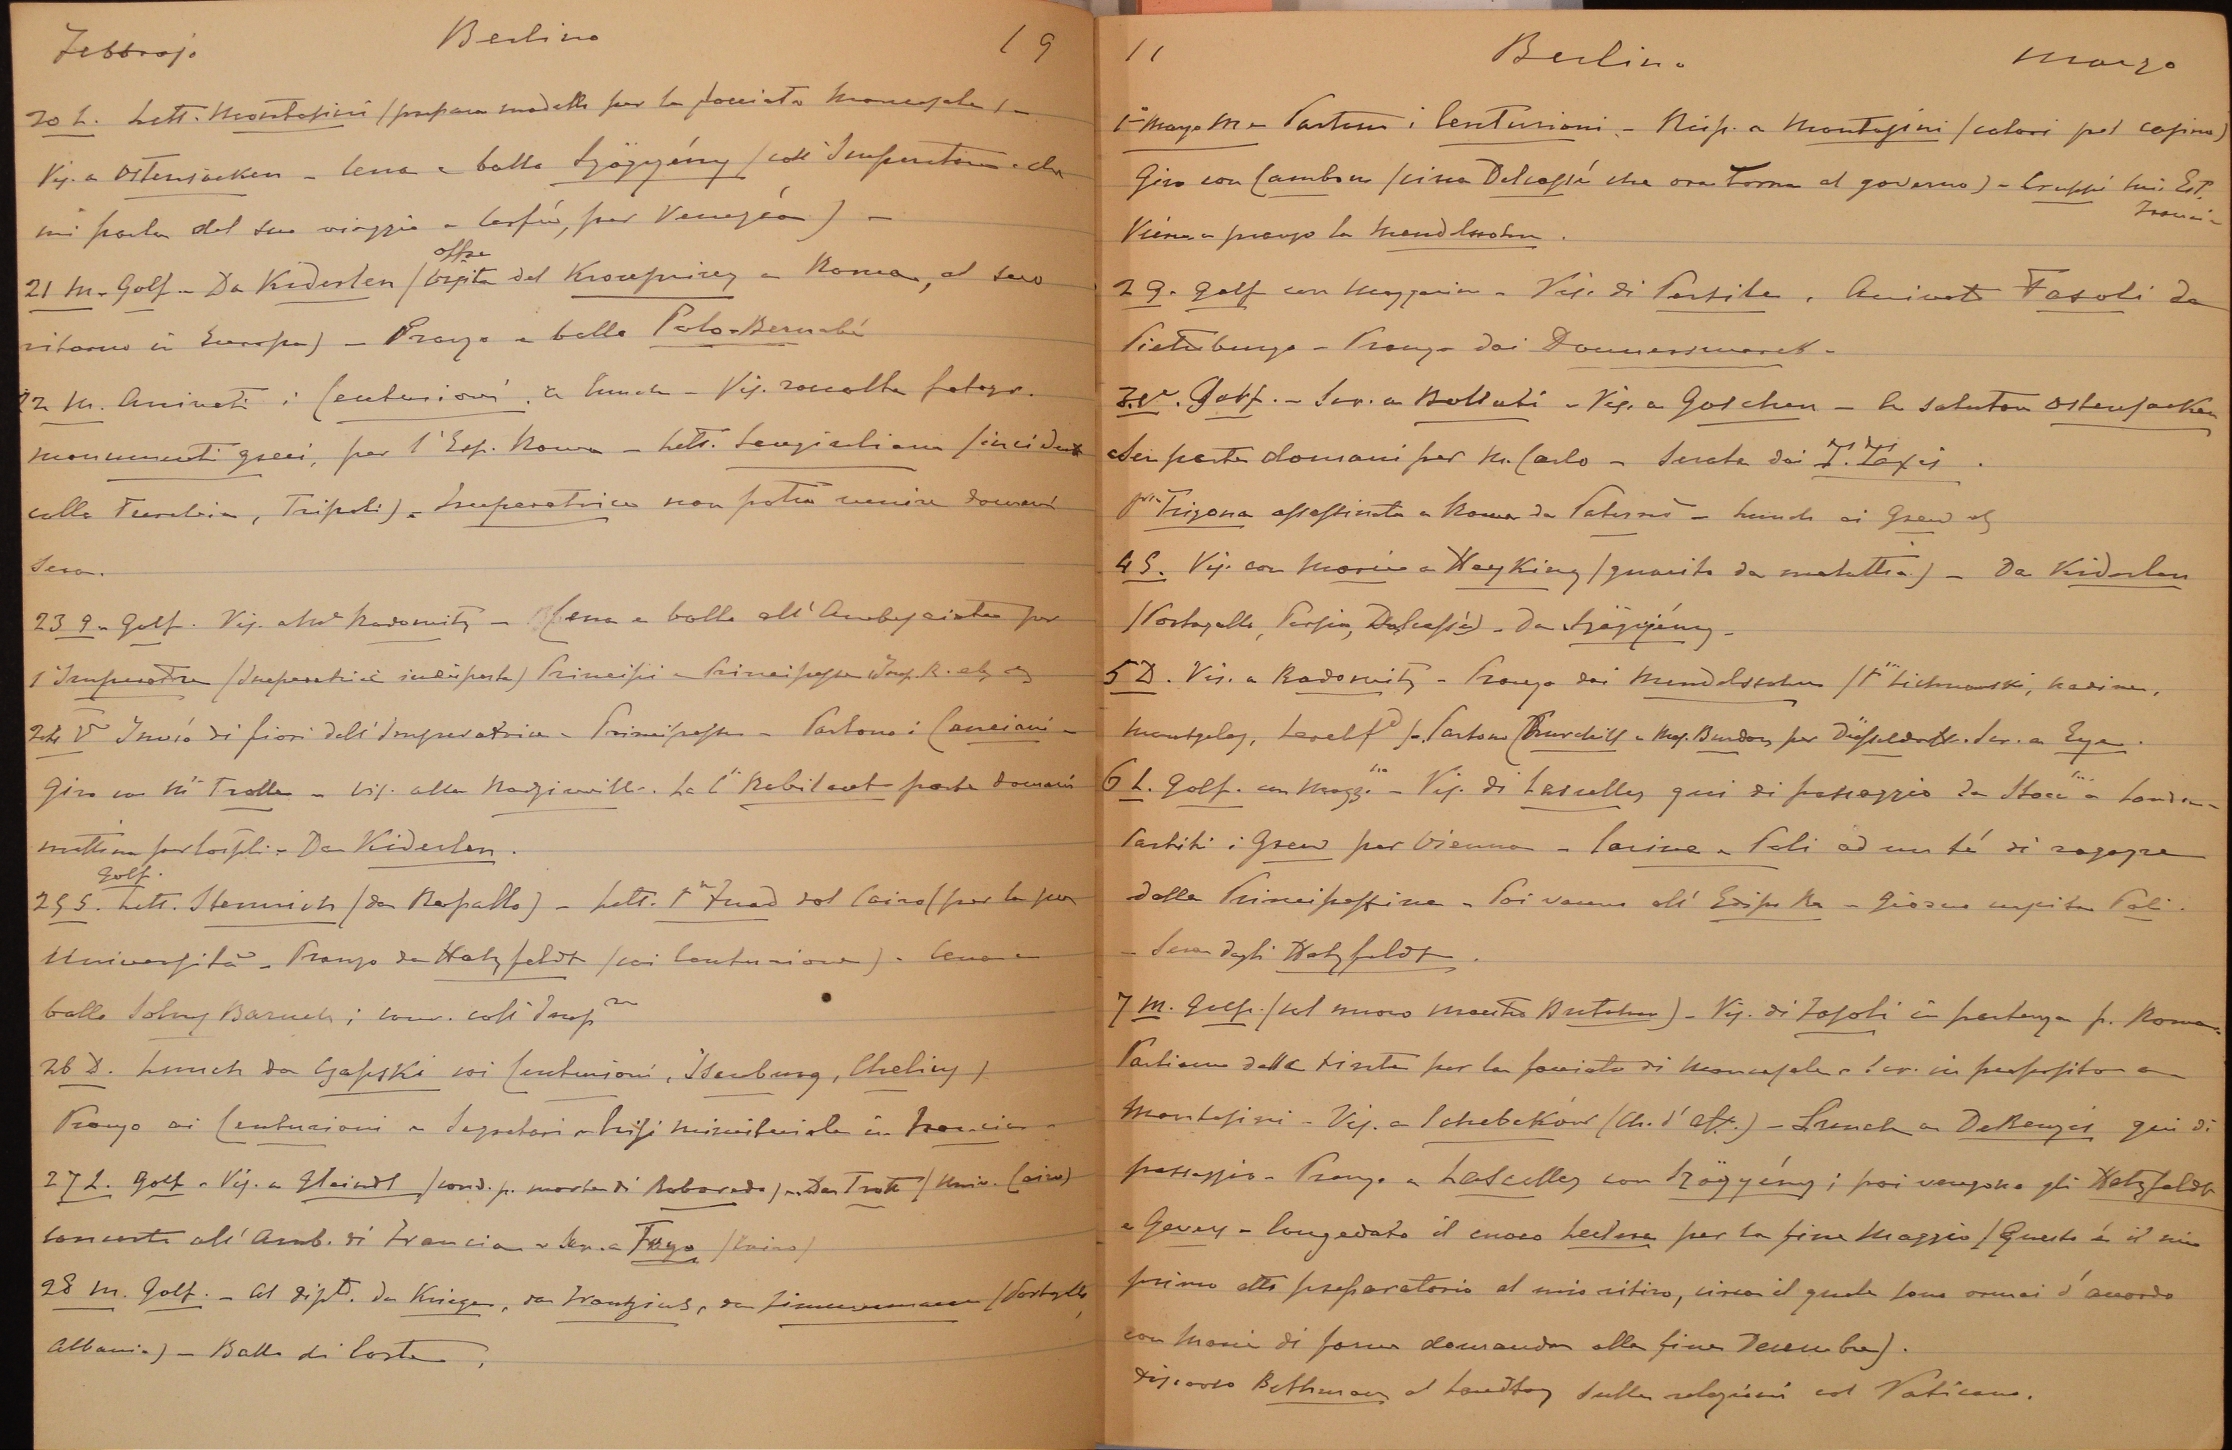 Febbrajo Berlino 19
20 L. Lett. Montesini (prepara modello per la facciata Moncujole) -
Vis. a Ostensacken - Cena e ballo Szögyény (coll'Imperatore che
mi parla del suo viaggio a Corfù, per Venezia) -
21 M. Golf - Da Kiderlen (offre ospita del Kronprinz a Roma, al suo
ritorno in Europa) - Pranzo e ballo Polo-Bernabé
22 M. Arrivati i Centurioni, a lunch - Vis. raccolta fotogr.
monumenti greci, per l'Esp. Roma - Lett. Sangiuliano (incidente
colla Turchia, Tripoli) - Imperatrice non potrà venire domani
sera.
23 G. Golf. Vis. a Radowitz - Cena e ballo all'Ambasciata per
l'Imperatore (Imperatrice indisposta) Principi e Principesse
24 V Invio di fiori dell'Imperatrice - Principesse - Partono i Canciani -
Giro con Trolle - Vis. alla Radziwill - La Robilant parte domani
mattina - Da Kiderlen.
Golf.
25 S. Lett. Stemrich (da Rapallo) - Lett. Fuad dal Cairo (per la sua
Università - Pranzo da Hatzfeldt (coi Centurione) - Cena e
ballo Solms Baruth; conv. coll'Imp.re
26 D. Lunch da coi Centurioni, Isenburg, Chelius)
Pranzo ai Centurioni e Segretari - Crisi ministeriale in Francia -
27 L. Golf - Vis. a Gleindl (cond. p. morte di ) - Da Trott (Univ. Cairo)
Concerto all'Amb. di Francia - Scr. a (Cairo)
28 M. Golf. - Al dip.to da Kriege, da Frantzius, da Zimmermann (Portogallo,
Albania) - Ballo di Corte,
11 Berlino Marzo
1 Marzo M - Partono i Centurioni - Risp. a Montesini (colori pel casino)
Giro con Cambon (circa Delcassé che ora torna al governo) - Cruppi Min. Est. Francia
Viene a pranzo la Mendelssohn.
2 G. Golf con Maggiorin - Vis. di Persile. Arrivato Fasoli da
Pietroburgo - Pranzo dai Donnersmarck -
3 V. Golf. - Scr. a Bollati - Vis. a Goschen - a salutare Ostensacken
che parte domani per M. Carlo - Serata dai T. Taxis.
Trigona assassinata a Roma da Paternò - Lunch ai Grew
4 S. Vis. con Maria a Heyking (guarito da malattia) - Da Kiderlen
(Portogallo, Persia, Delcassé) - Da Szögyény -
5 D. Vis. a Radowitz - Pranzo dai Mendelssohn (Lichnowski,
Montgelas, ) - Partono Churchill e per Düsseldorf. Scr. a
6 L. Golf. con Magg. - Vis. di Lascelles qui di passaggio da a Londra -
Partiti i Grew per Vienna - Carina e Poli ad un té di ragazze
dalla Principessina - Poi vanno all' - Poli -
- Sera dagli Hatzfeldt.
7 M. Golf. (col nuovo maestro Butcher) - Vis. di Fasoli in partenza p. Roma.
Parliamo delle tinte per la facciata di Moncujole - Scr. in proposito a
Montesini - Vis. a Schebekow (Ch. d'aff.) - Lunch a DeRenzis qui di
passaggio - Pranzo a Lascelles con Szögyény; poi vengono gli Hatzfeldt
e - Congedato il cuoco Lectere per la fine Maggio (Questo è il mio
primo atto preparatorio al mio ritiro, circa il quale sono ormai d'accordo
con Maria di farne domanda alla fine Decembre).
Discorso Bethmann al Landtag sulle relazioni col Vaticano.